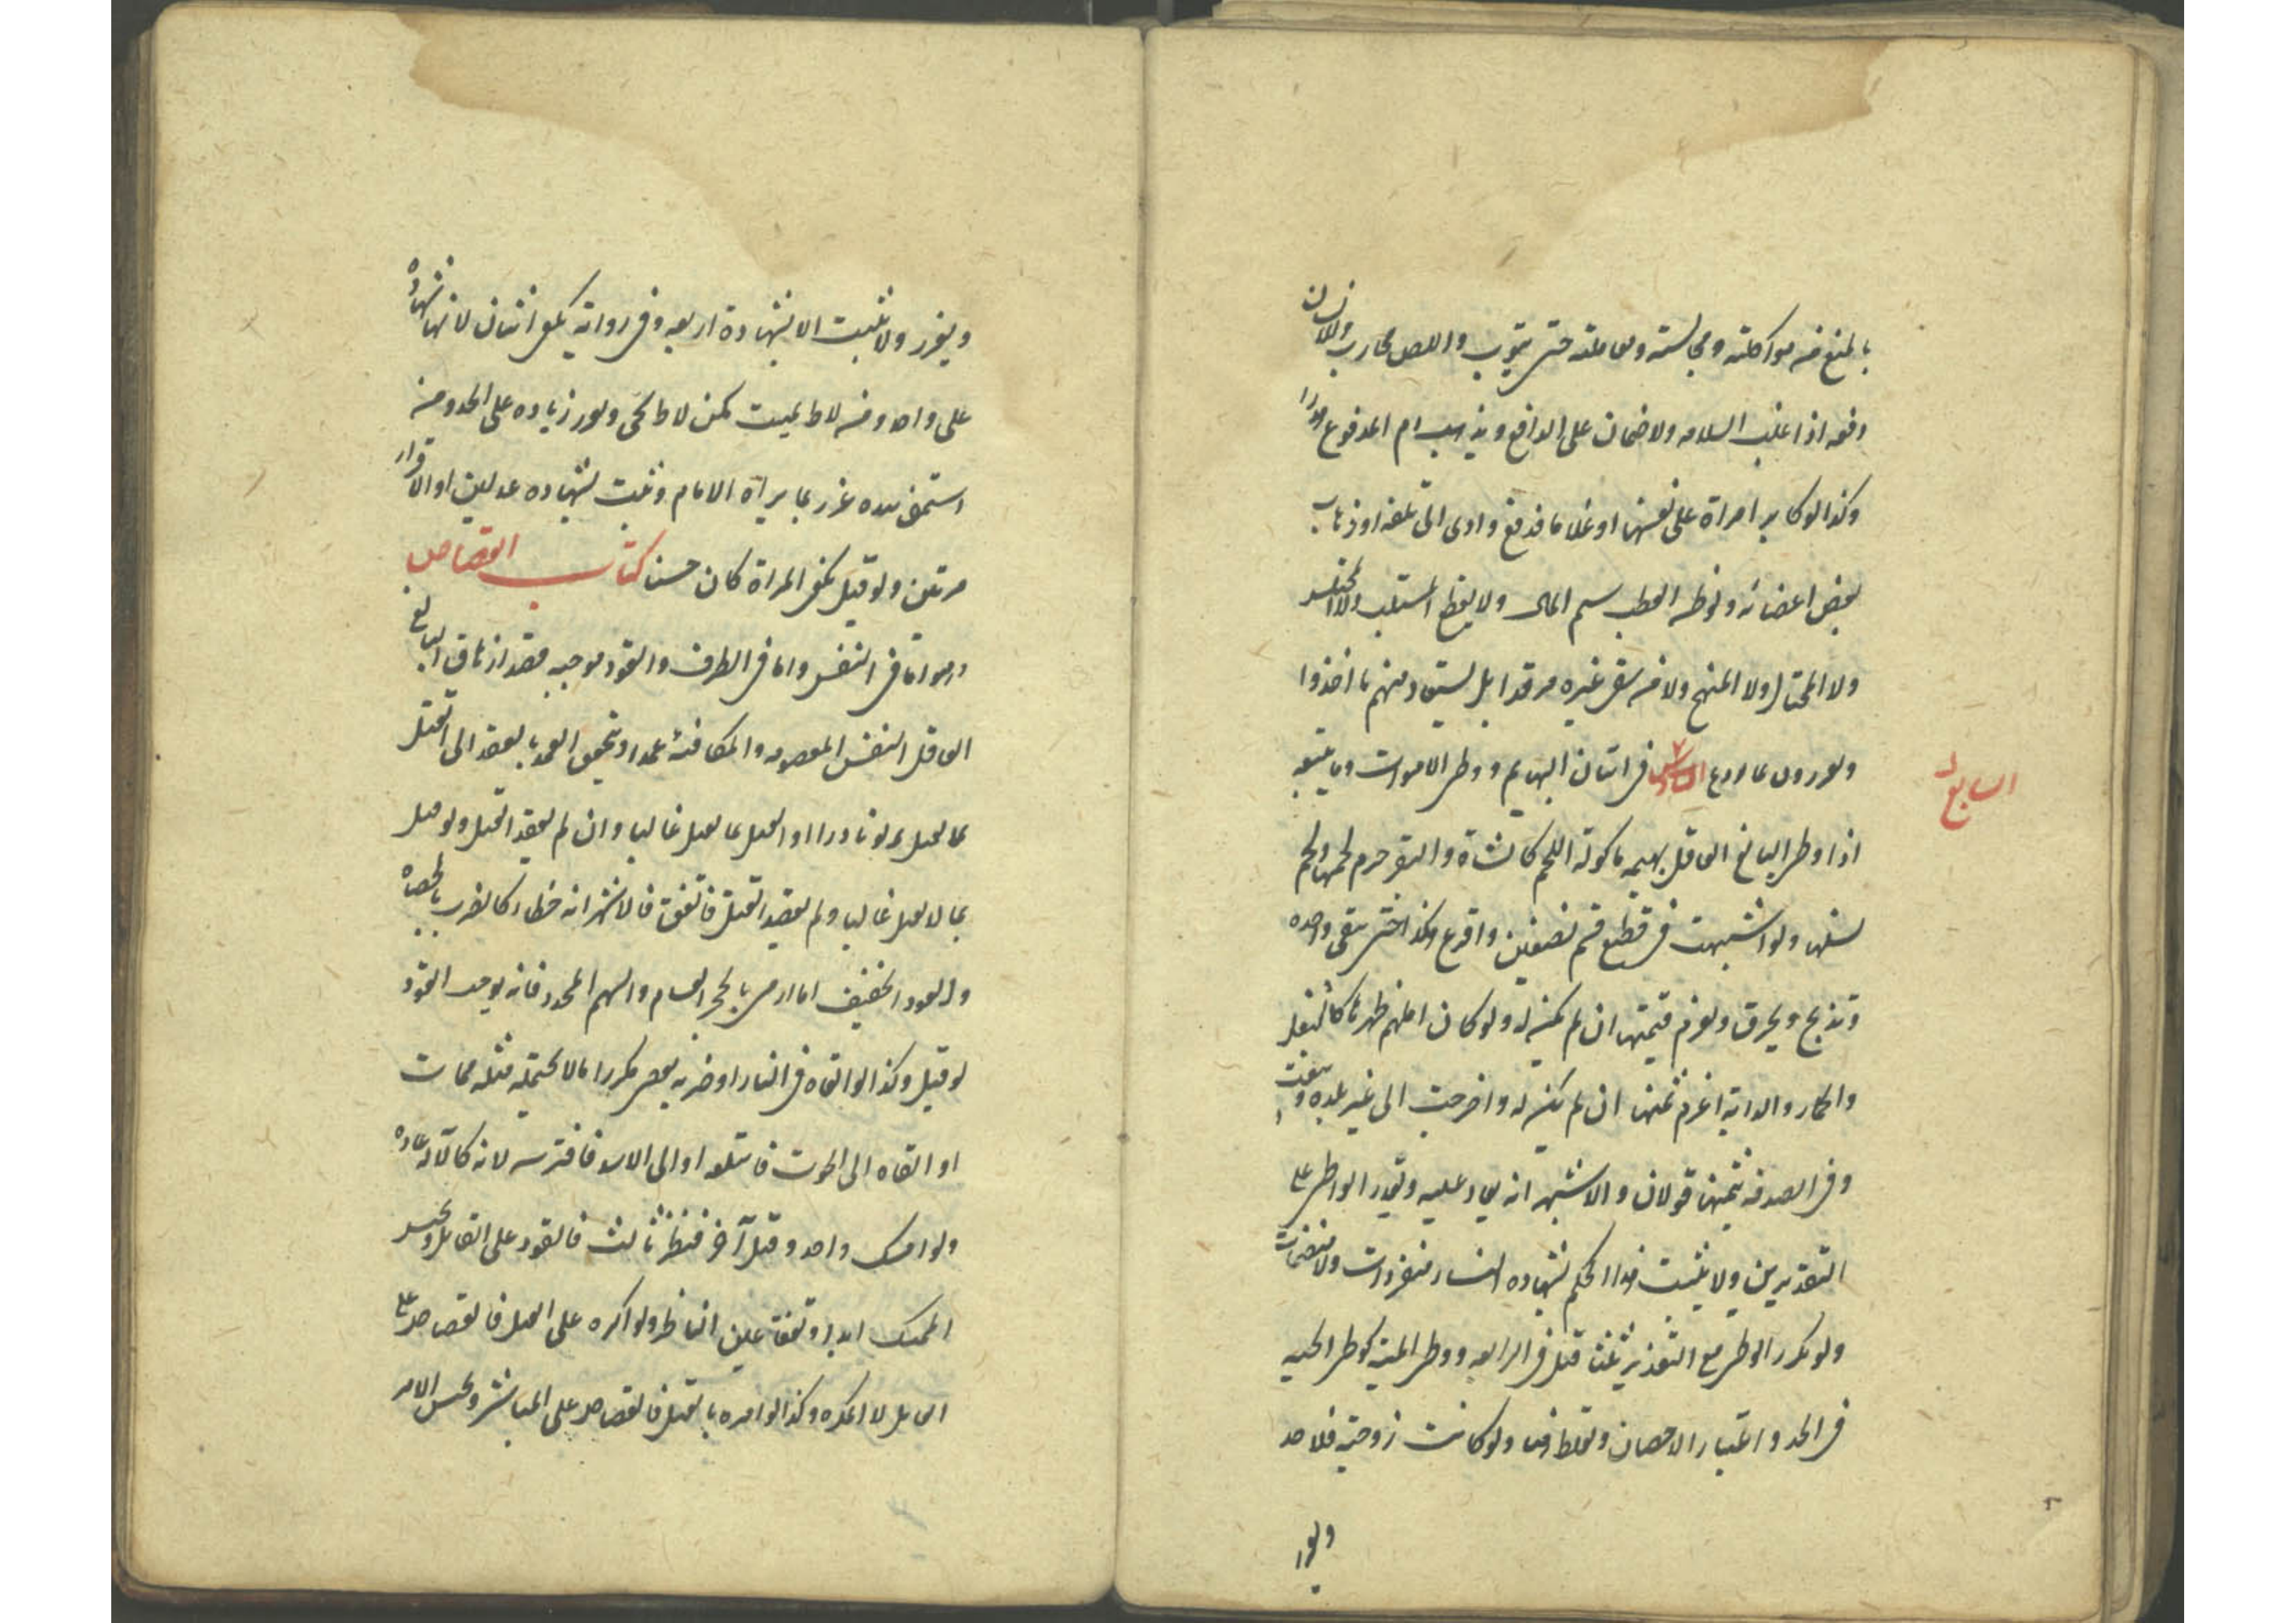 بالمنع من مواكلته ومجالسته ومعاملته حتى يتوب واللص محارب وللانسان
دفعه اذا غلب السلامه ولا ضمان على الدافع ويذهب دم المدفوع هدرا
وكذا لو كابر امراة على نفسها او غلاما فدفع وادى الى تلفه او ذهاب
بعض اعضائه ولو ظنه العطب سلم المال ولا يقطع المستلب ولا المختلس
ولا المحتال ولا المبنج ولا من سقى غيره مرقدا بل يستعاد منهم ما اخذوا
ويعزرون بما يردع السادس في اتيان البهايم ووطى الاموات وما يتبعه
السابع
اذا وطى البالغ العاقل بهيمه ماكولة اللحم كالشاة والبقر حرم لحمها ولحم
نسلها ولو اشتبهت في قطيع قسم نصفين واقرع وهكذا حتى يبقى واحده
وتذبح وتحرق ويغرم قيمتها ان لم يكن له ولو كان المهم ظهرها كالبغل
والحمار والدابه اغرم ثمنها ان لم يكن له واخرجت الى غير بلده وبيعت
وفي الصدقه بثمنها قولان والاشبه انه يعاد عليه ويعزر الواطى على
التقديرين ولا يثبت هذا الحكم بشهاده النساء منفردات ولا منضمات
ولو تكرر الوطى مع التعزير ثلثا قتل في الرابعه ووطى الميته كوطى الحيه
في الحد واعتبار الاحصان وتغلظ هنا ولو كانت زوجته فلا حد
ويعزر
ويعزر ولا يثبت الا بشهادة اربعه وفي روايه يكفي اثنان لانها شهاده
على واحد ومن لاط بميت كمن لاط بحي ويعزر زياده على الحد ومن
استمنى بيده عزر بما يراه الامام ويثبت بشهاده عدلين او الاقرار
مرتين ولو قيل يكفي المراة كان حسنا كتاب القصاص
وهو اما في النفس واما في الطرف والقود موجبه قصد ازهاق البالغ
العاقل النفس المعصومه المكافئه عمدا ويتحقق العمد بالقصد الى القتل
بما يقتل ولو نادرا او القتل بما يقتل غالبا وان لم يقصد القتل ولو قتل
بما لا يقتل غالبا ولم يقصد القتل فاتفق فالاشهر انه خطاء كالضرب بالحصاه
والعود الخفيف اما الرمي بالحجر الغامر والسهم المحدد فانه يوجب القود
لو قتل وكذا لو القاه في النار او ضربه بعصى مكررا ما لا يحتمله مثله فمات
او القاه الى الحوت فابتلعه او الى الاسد فافترسه لانه كالآله عاده
ولو امسك واحد وقتل آخر فنظر ثالث فالقود على القاتل ويحبس
الممسك ابدا وتفقأ عين الناظر ولو اكره على القتل فالقصاص على
القاتل لا المكره وكذا لو امره بالقتل فالقصاص على المباشر ويحبس الامر